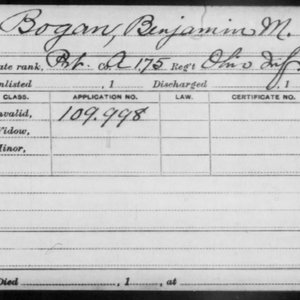 Bogan, Benjamin M.
ate rank, Pvt. Co. A 175 Reg't Ohio Inf
nlisted , 1 Discharged , 1
CLASS. APPLICATION NO. LAW. CERTIFICATE NO.
nvalid, 109.998
Vidow,
Minor,
Died , 1 , at